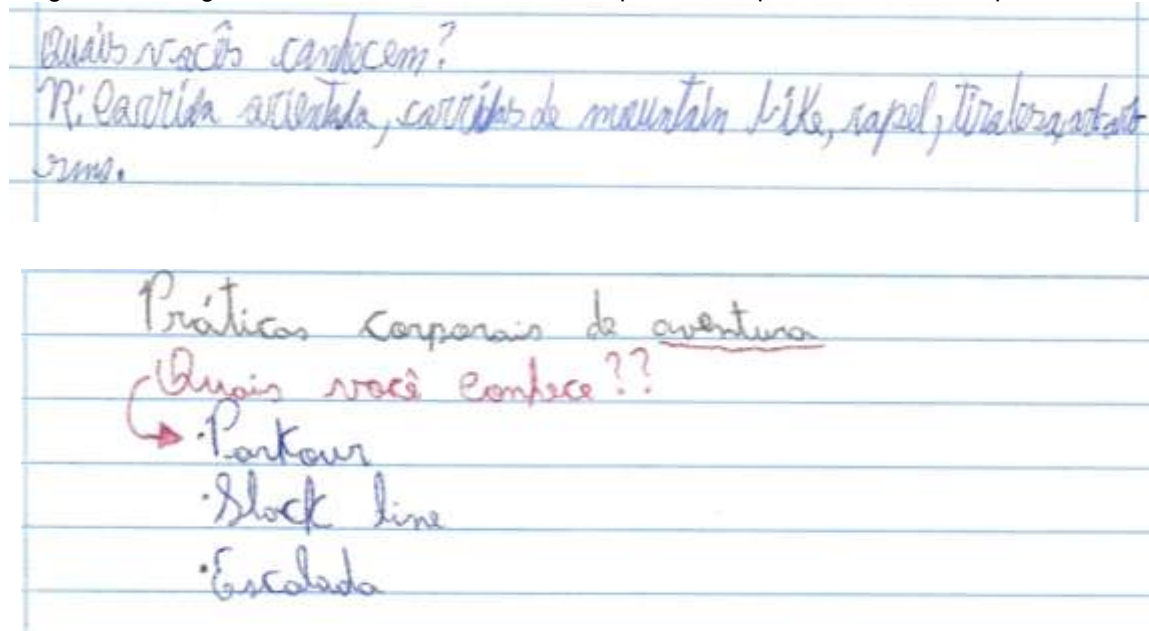 Quais vocês conhecem?
R: Corrida orientada, corridas de mountain bike, rapel, tirolesa,
Práticas corporais de aventura
Quais você conhece??
·Parkour
·Slack line
·Escalada